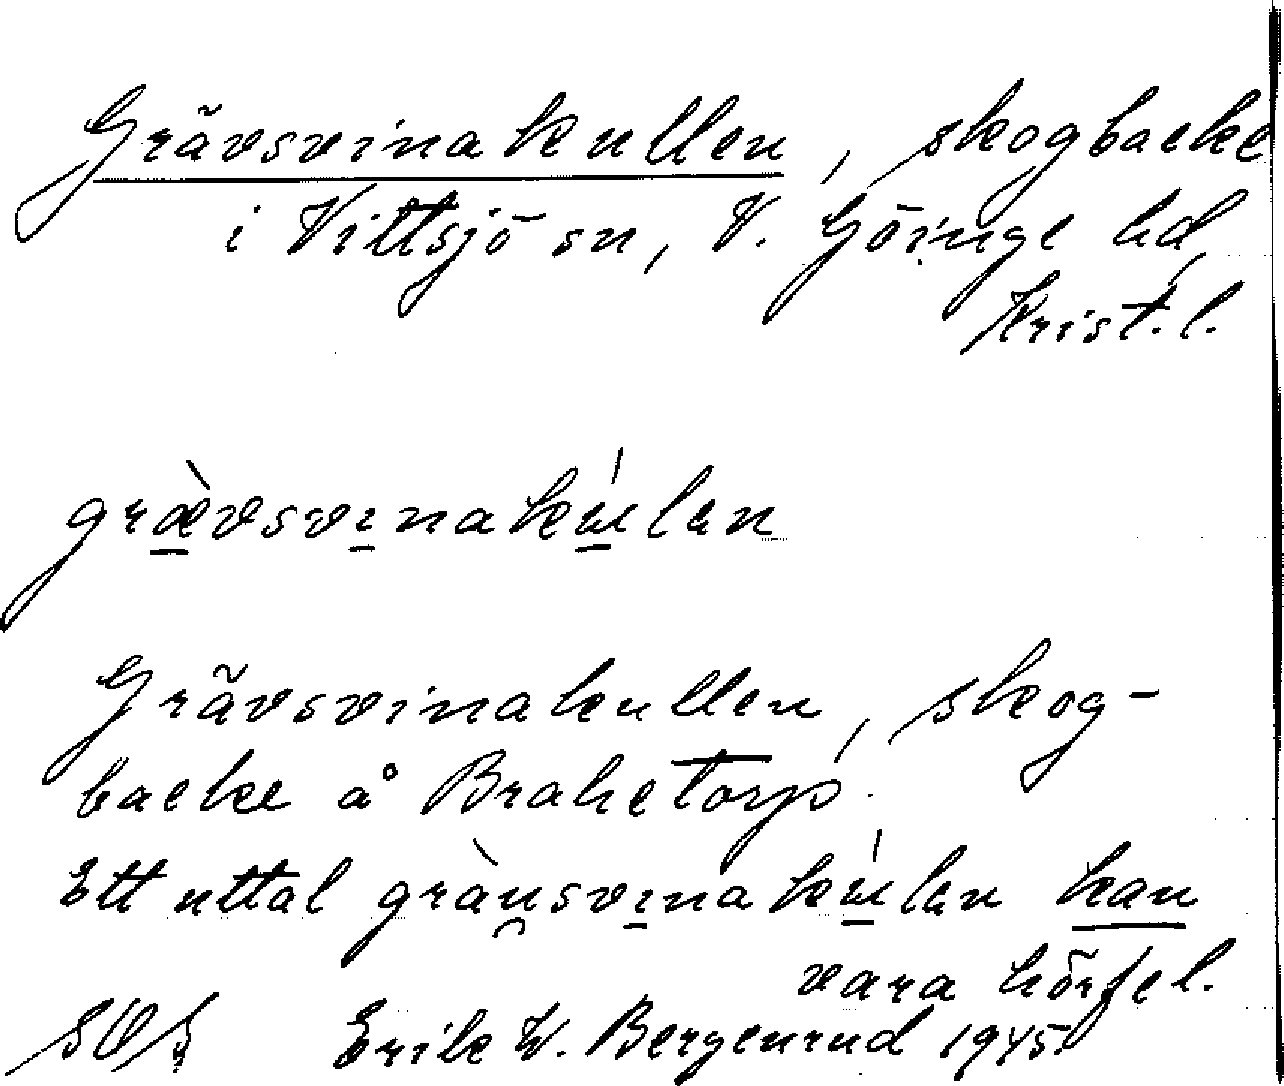 Grävsvinakullen, skogbacke
i Vittsjö sn, V. Göinge hd,
Krist. l.
græ̀vsvınakɯ́lən
Grävsvinakullen, skog-
backe å Brahetorp.
Ett uttal gràu̯svınakɯ́lən kan
vara hörfel.
Erik W. Bergenrud 1945.